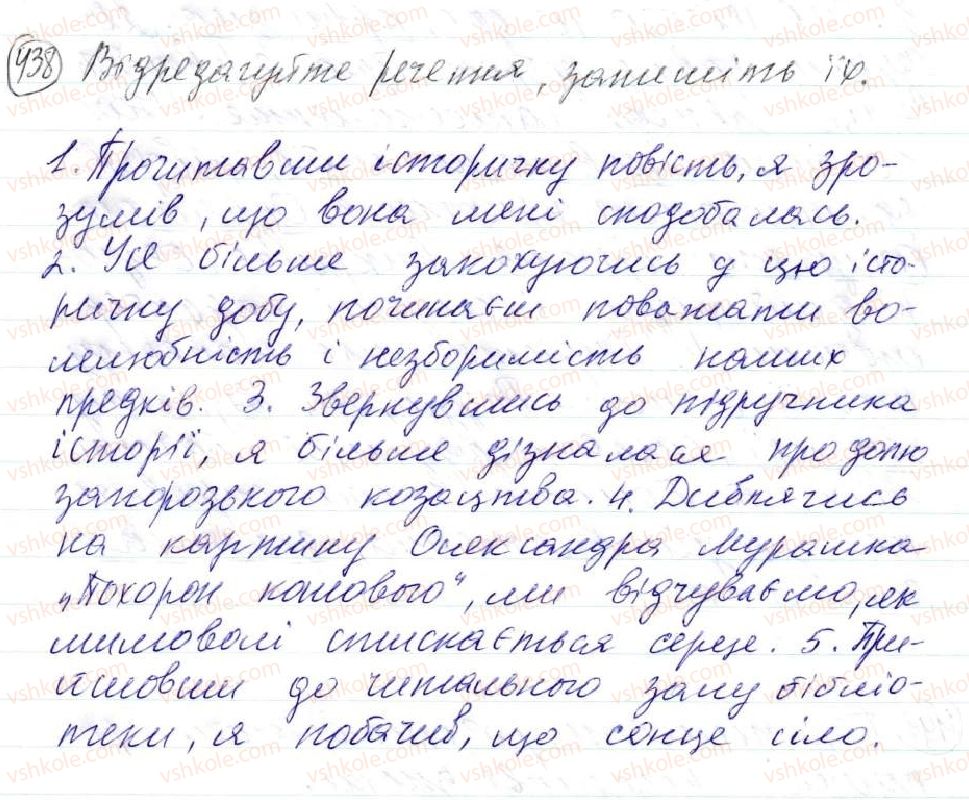 438 Відредагуйте речення, запишіть їх.
1. Прочитавши історичну повість, я зро-
зумів, що вона мені сподобалась.
2. Усе більше закохуючись у цю істо-
ричну добу, починаєш поважати во-
лелюбність і незборимість наших
предків. 3. Звернувшись до підручника
історії, я більше дізналася про долю
запорозького козацтва. 4. Дивлячись
на картину Олександра Мурашка
„Похорон кошового", ми відчуваємо, як
мимоволі стискається серце. 5. При-
йшовши до читального залу бібліо-
теки, я побачив, що сонце сіло.